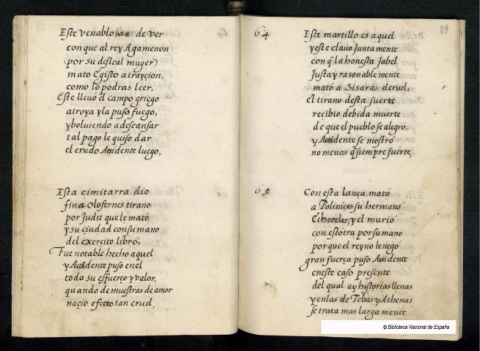 Este venablo has de ver
con que al rey Agamenon
(por su desleal muger)
mato Egisto a trayçion,
como lo podras leer.
Este lleuo el campo griego
a troya y la puso fuego,
y boluiendo a descansar
tal pago le quiso dar
el crudo Accidente luego.
Esta cimitarra dio
fin a Olofernes tirano
por Judit que le mato
y su ciudad con su mano
del exercito libro,
Fue notable hecho aquel
y Accidente puso en el
todo su esfuerço y valor,
quando de muestras de amor
nacio efecto tan cruel
64
Este martillo es aquel
y este clauo Juntamente
con q̃ la honesta Jabel
Justa y rasonable mente
mató a Sisarás el cruel,
el tirano desta suerte
recibio debida muerte
de que el pueblo se alegro.
y Accidente se mostro
no menos q̃ siempre fuerte,
Con esta lança mató
a Polinices su hermano
Etheocles, y el murio
con estotra por su mano
por que el reyno le nego
gran fuerça puso Accidente
en este caso presente
del qual ay historias llenas
y en las de Tebas y Athenas
se trata mas larga mente
© Biblioteca Nacional de España